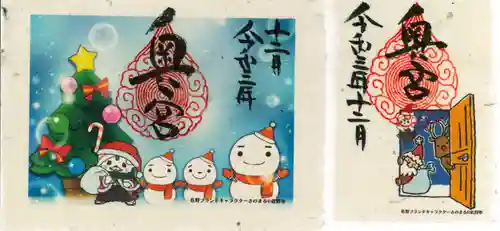 奥宮
十二月
令和三年
佐野ブランドキャラクターさのまる©佐野市
奥宮
令和三年十二月
佐野ブランドキャラクターさのまる©佐野市